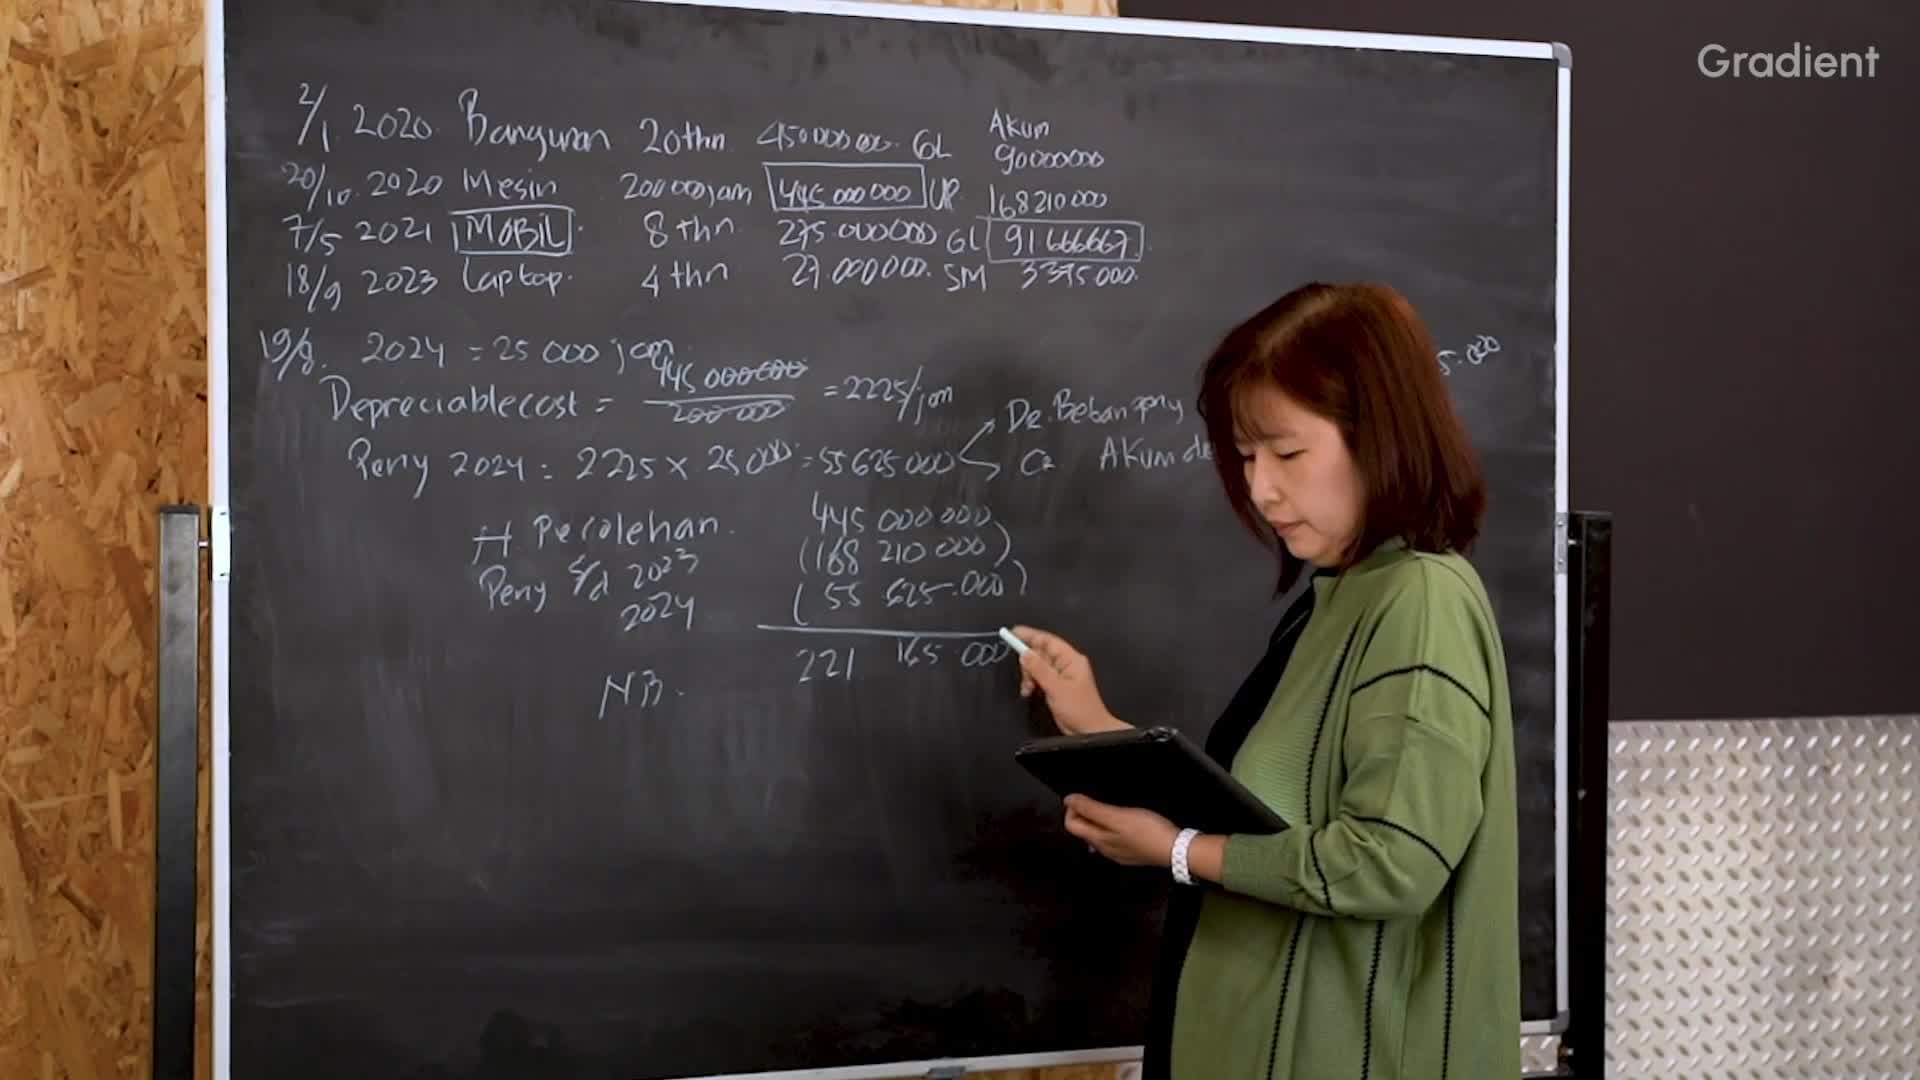 Gradient
2/1. 2020. Bangunan 20 thn. 450000000. GL Akum 90000000
20/10. 2020 Mesin 200000jam 445 000 000 UP 168210000
7/5 2021 MOBIL. 8 thn 275 000000 GL 91 666667.
18/9 2023 Laptop. 4 thn 27.000000. SM 3375000.
19/8. 2024 = 25 000 jam
Depreciablecost = 445 000000 / 200 000 = 2225/jam De. Beban peny 5.000
Peny 2024 = 2225 x 25000 = 55 625 000 Cr Akum de
H. Perolehan. 445 000000
Peny s/d 2023 (168 210 000)
2024 ( 55 625.000)
NB. 221 165 000